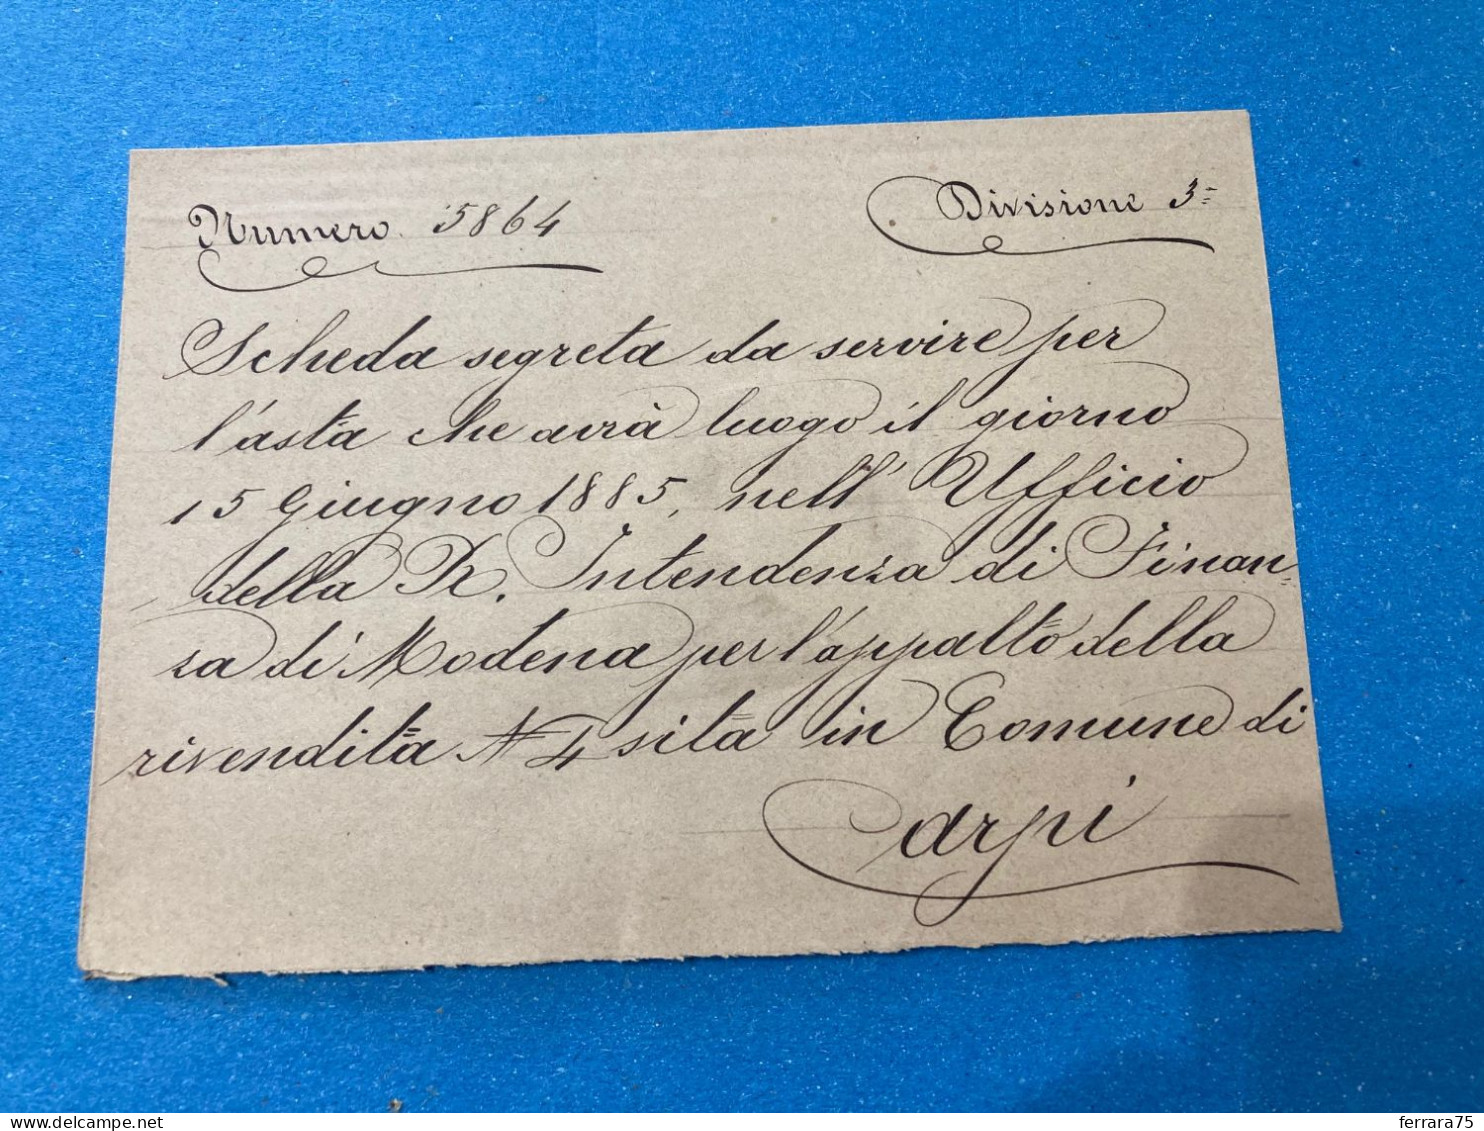 Numero 5864
Divisione 3ª
Scheda segreta da servire per
l'asta che avrà luogo il giorno
15 Giugno 1885, nell' Ufficio
della R. Intendenza di Finan-
za di Modena per l'appalto della
rivendita N 4 sita in Comune di
Carpi
ferrara75